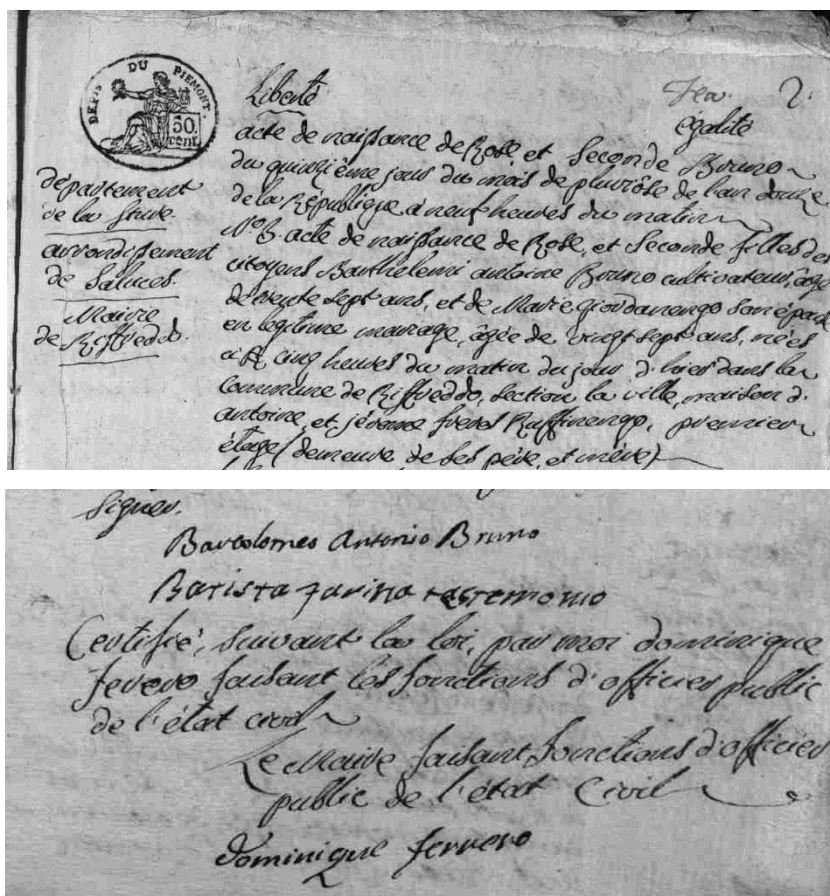 DÉP.TS DU PIEMONT.
50.
cent.
Liberté
egalité
2.
departement
de la Sture
arrondissement
de Saluces.
Mairie
de Riffreddo.
acte de naissance de Rose, et Seconde Bruno
du quinzième jour du mois de pluviôse de l'an douze
de la République a neuf heures du matin
acte de naissance de Rose, et Seconde filles des
citoyens Barthelemi antoine Bruno cultivateur, âgé
de trente sept ans, et de Marie giordanengo son épouse
en legitime mariage, âgée de vingt sept ans, nées
cinq heures du matin du jour d'hier dans la
Commune de Riffreddo, section la ville, maison d'
antoine, et jérome freres Ruffinengo, premier
étage (demeure de ses père, et mère)
signer.
Bartolomeo Antonio Bruno
Batista
Certifié, suivant la loi, par moi dominique
ferrero faisant les fonctions d'officier public
de l'état civil
Le Maire faisant fonctions d'officier
public de l'état Civil
dominique ferrero